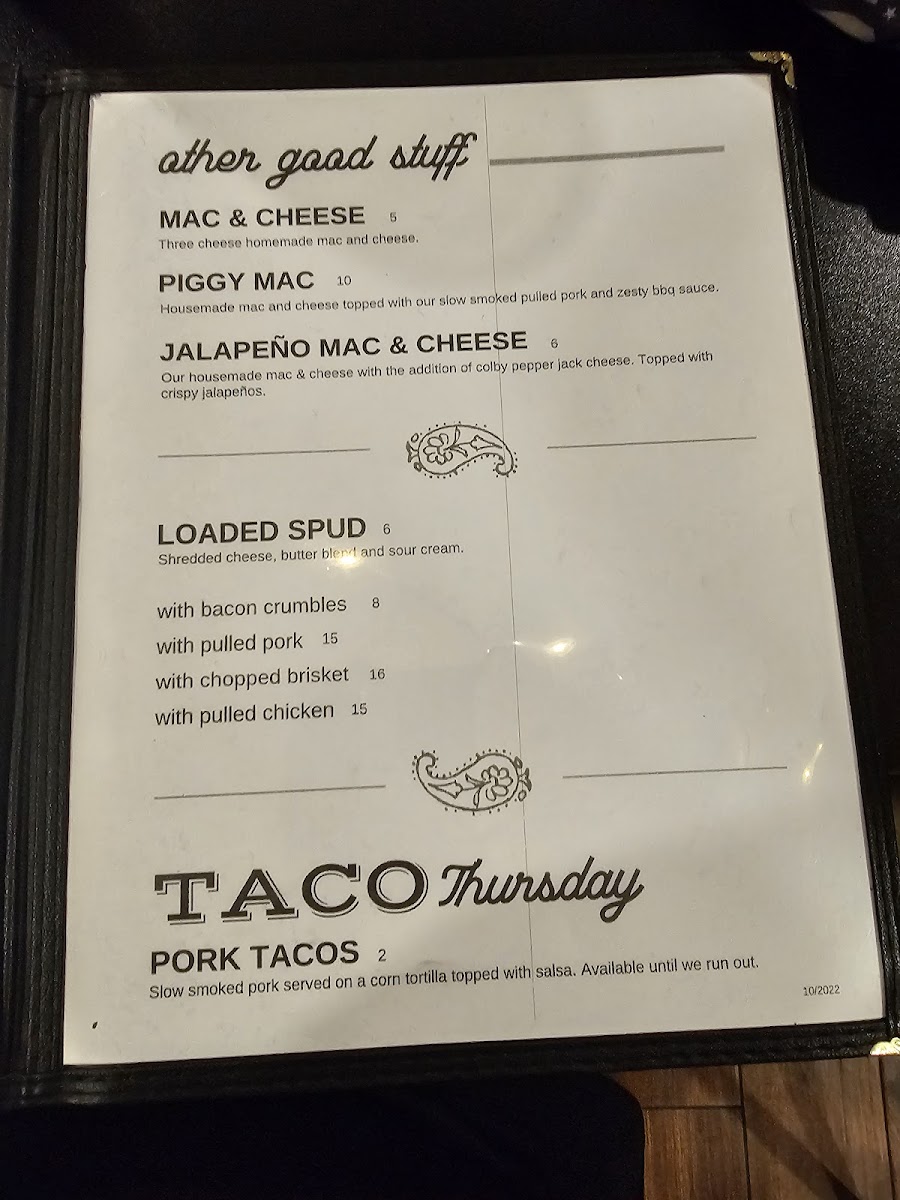 other good stuff
MAC & CHEESE 5
Three cheese homemade mac and cheese.
PIGGY MAC 10
Housemade mac and cheese topped with our slow smoked pulled pork and zesty bbq sauce.
JALAPEÑO MAC & CHEESE 6
Our housemade mac & cheese with the addition of colby pepper jack cheese. Topped with
crispy jalapeños.
LOADED SPUD 6
Shredded cheese, butter blend and sour cream.
with bacon crumbles 8
with pulled pork 15
with chopped brisket 16
with pulled chicken 15
TACO Thursday
PORK TACOS 2
Slow smoked pork served on a corn tortilla topped with salsa. Available until we run out.
10/2022